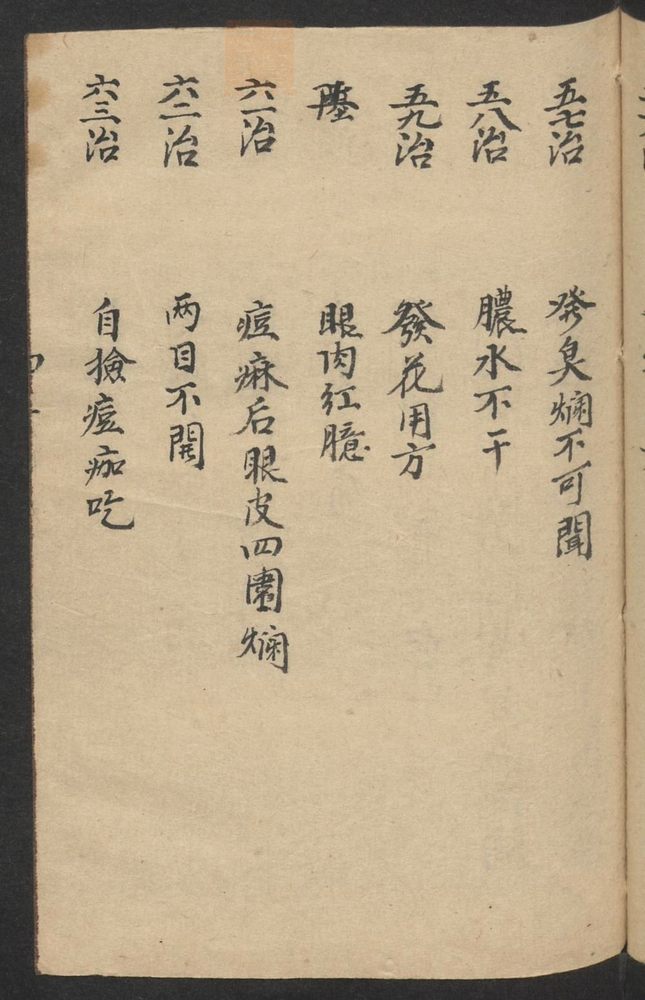 五七治 發臭爛不可聞
五八治 膿水不干
五九治 發花用方
眼肉紅臆
六一治 痘痳后眼皮四圍爛
六二治 两目不開
六三治 自撿痘痂吃